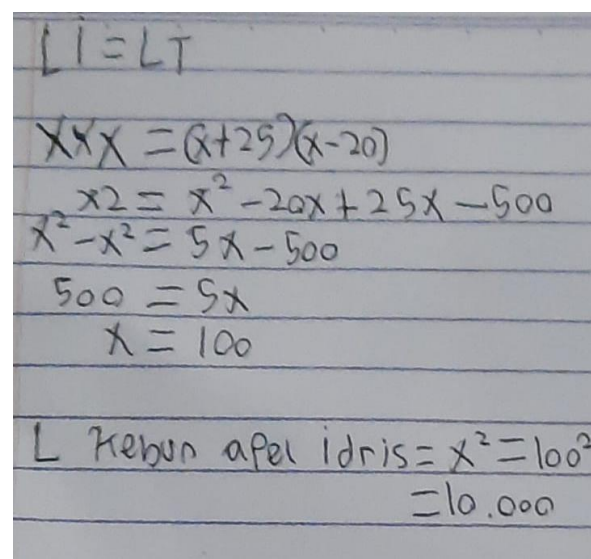 Li = LT
x × x = (x+25)(x-20)
x2 = x² - 20x + 25x - 500
x² - x² = 5x - 500
500 = 5x
x = 100
L Kebun apel idris = x² = 100²
= 10.000